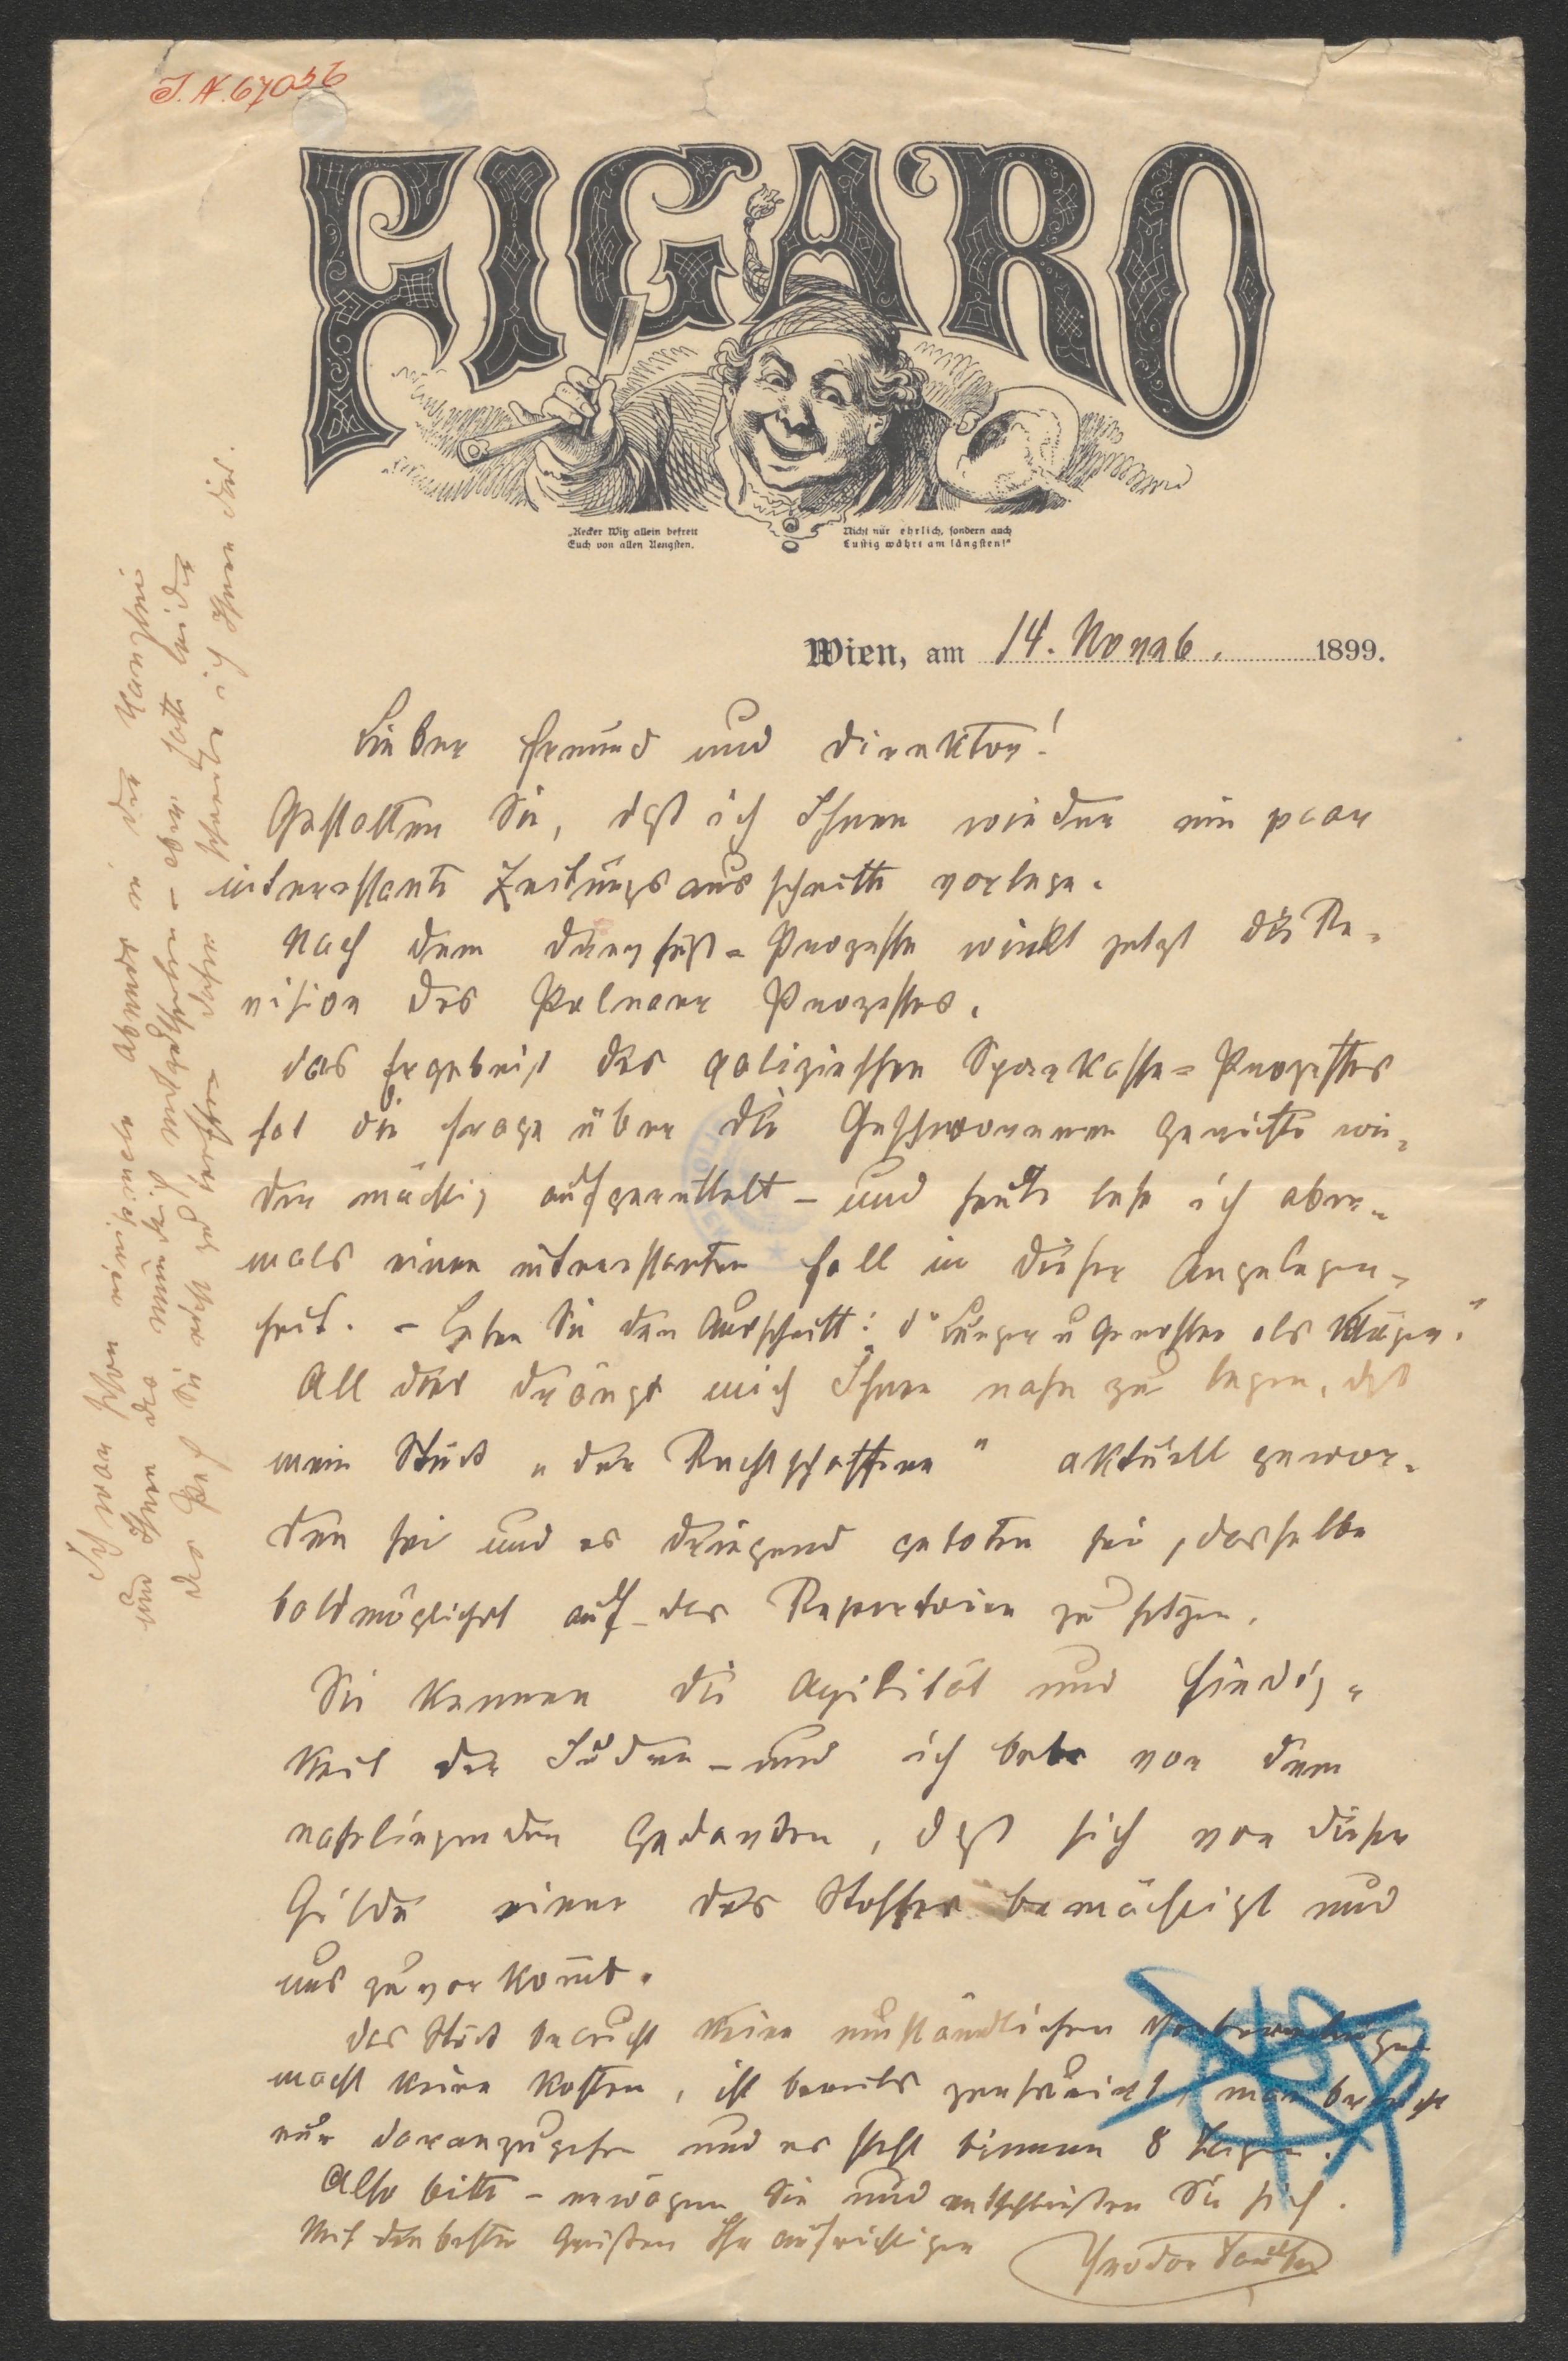 J. N. 67056
FIGARO
„Kecker Witz allein befreit
Euch von allen Aengsten.
Nicht nur ehrlich, sondern auch
Lustig währt am längsten!"
Wien, am 14. Novemb. 1899.
Lieber Freund und Direktor!
Gestatten Sie, daß ich Ihnen wieder ein paar
interessante Zeitungsausschnitte vorlege.
Nach dem Prozesse winkt jetzt die Re-
vision des Polnaer Prozesses.
Das Ergebniß des galizischen Sparkasse-Prozesses
hat die Frage über die Geschworenen Gerichte wie-
der mächtig aufgerüttelt – und heute lese ich aber-
mals einen interessanten Fall in dieser Angelegen-
heit. – Lesen Sie den Ausschnitt: Lueger u Genossen als Kläger."
All dies drängt mich Ihnen nahe zu legen, daß
mein Stück „der Rechtschaffene" aktuell gewor-
den sei und es dringend geboten sei, dasselbe
baldmöglichst auf das Repertoire zu setzen.
Sie kennen die Agilität und Findig-
keit der Juden – und ich bebe vor dem
naheliegenden Gedanken, daß sich von dieser
Gilde einer des Stoffes bemächtigt und
uns zuvorkomt.
Das Stück braucht keine umständlichen Vorbereitungen
macht keine Kosten, ist bereits zensurirt, man braucht
nur daranzugehen und es steht binnen 8 Tagen.
Also bitte – erwägen Sie und entschließen Sie sich.
Mit den besten Grüßen Ihr aufrichtiger
Theodor Taube
Ich war schon einigemale Abends in der Kanzlei
und Ihnen das nun hiemit
das Pech Sie nicht zu treffen daher schreibe ich Ihnen dies.